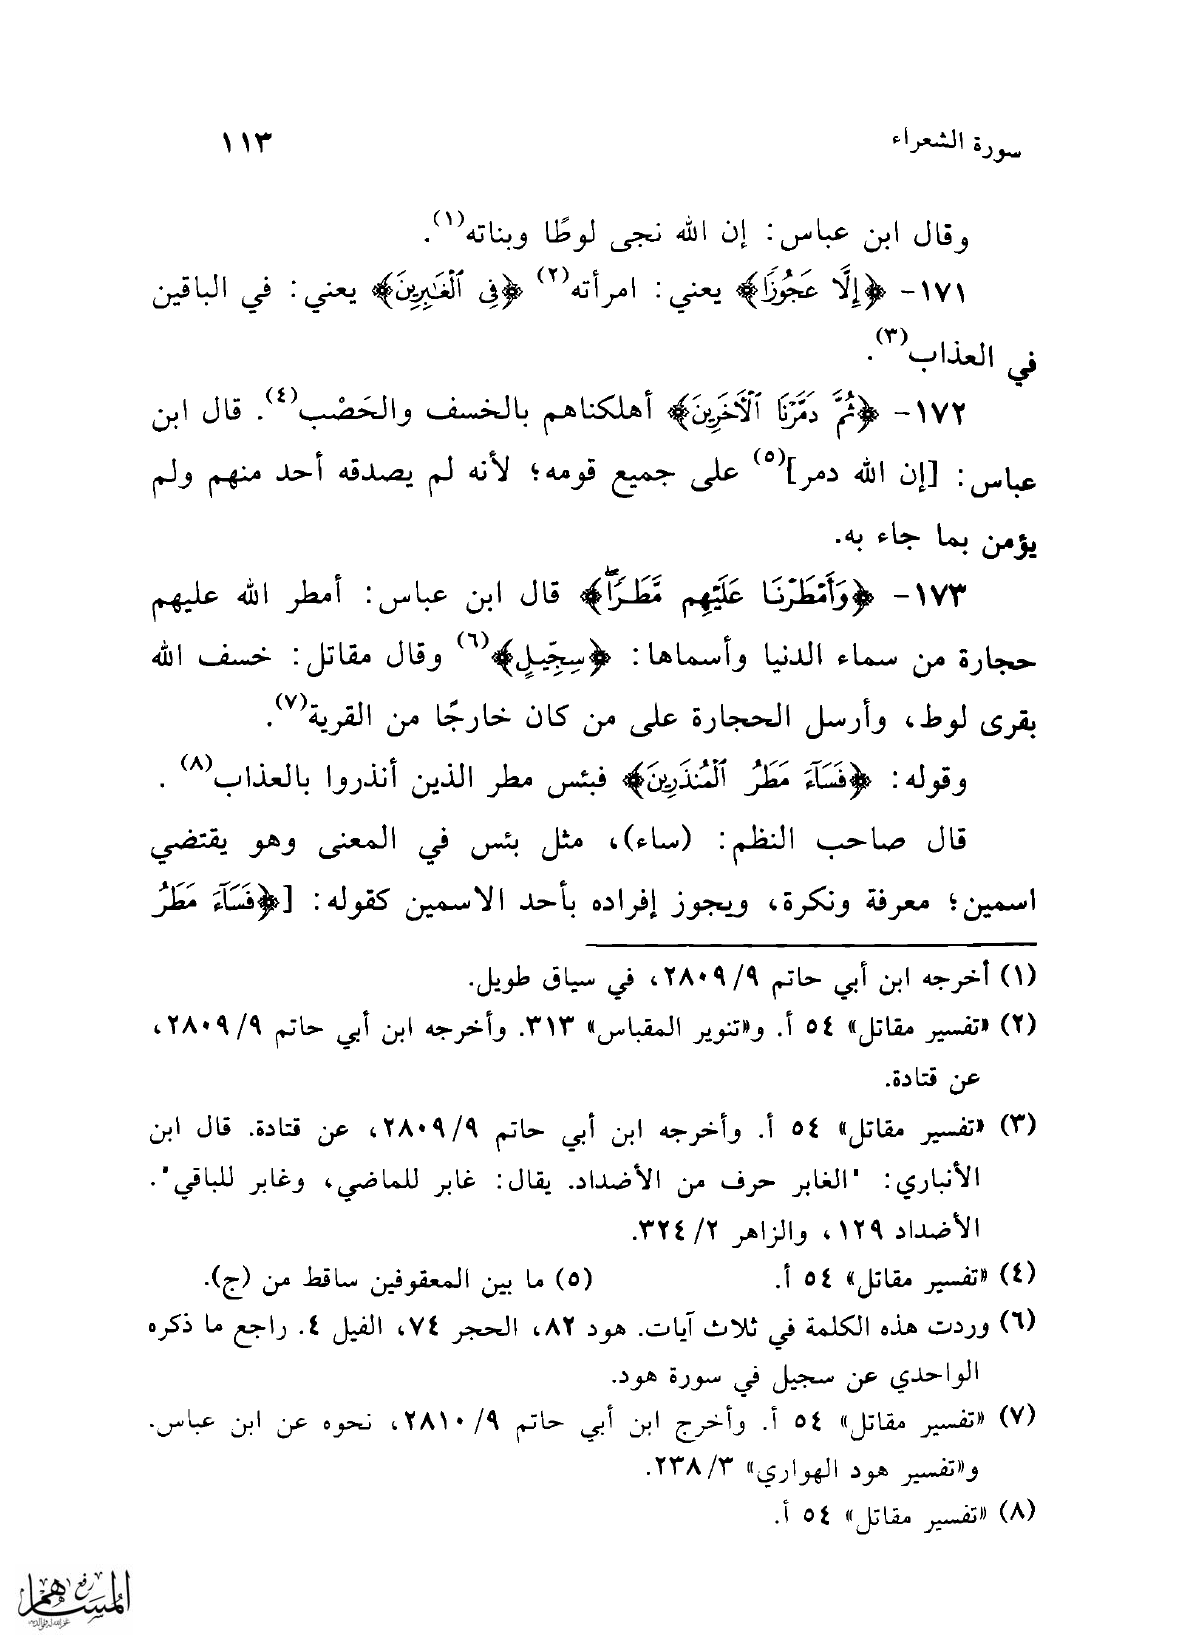 سورة الشعراء
١١٣
وقال ابن عباس: إن الله نجى لوطًا وبناته(١).
١٧١- ﴿إِلَّا عَجُوزًا﴾ يعني: امرأته(٢) ﴿فِي ٱلْغَـٰبِرِينَ﴾ يعني: في الباقين
في العذاب(٣).
١٧٢- ﴿ثُمَّ دَمَّرْنَا ٱلْآخَرِينَ﴾ أهلكناهم بالخسف والحَصْب(٤). قال ابن
عباس: [إن الله دمر](٥) على جميع قومه؛ لأنه لم يصدقه أحد منهم ولم
يؤمن بما جاء به.
١٧٣- ﴿وَأَمْطَرْنَا عَلَيْهِم مَّطَرًاۖ﴾ قال ابن عباس: أمطر الله عليهم
حجارة من سماء الدنيا وأسماها: ﴿سِجِّيلٍ﴾(٦) وقال مقاتل: خسف الله
بقرى لوط، وأرسل الحجارة على من كان خارجًا من القرية(٧).
وقوله: ﴿فَسَآءَ مَطَرُ ٱلْمُنذَرِينَ﴾ فبئس مطر الذين أنذروا بالعذاب(٨) .
قال صاحب النظم: (ساء)، مثل بئس في المعنى وهو يقتضي
اسمين؛ معرفة ونكرة، ويجوز إفراده بأحد الاسمين كقوله: [﴿فَسَآءَ مَطَرُ
(١) أخرجه ابن أبي حاتم ٩/ ٢٨٠٩، في سياق طويل.
(٢) «تفسير مقاتل» ٥٤ أ. و«تنوير المقباس» ٣١٣. وأخرجه ابن أبي حاتم ٩/ ٢٨٠٩،
عن قتادة.
(٣) «تفسير مقاتل» ٥٤ أ. وأخرجه ابن أبي حاتم ٩/ ٢٨٠٩، عن قتادة. قال ابن
الأنباري: "الغابر حرف من الأضداد. يقال: غابر للماضي، وغابر للباقي".
الأضداد ١٢٩، والزاهر ٢/ ٣٢٤.
(٤) «تفسير مقاتل» ٥٤ أ. (٥) ما بين المعقوفين ساقط من (ج).
(٦) وردت هذه الكلمة في ثلاث آيات. هود ٨٢، الحجر ٧٤، الفيل ٤. راجع ما ذكره
الواحدي عن سجيل في سورة هود.
(٧) «تفسير مقاتل» ٥٤ أ. وأخرج ابن أبي حاتم ٩/ ٢٨١٠، نحوه عن ابن عباس.
و«تفسير هود الهواري» ٣/ ٢٣٨.
(٨) «تفسير مقاتل» ٥٤ أ.
رفع
المساهم